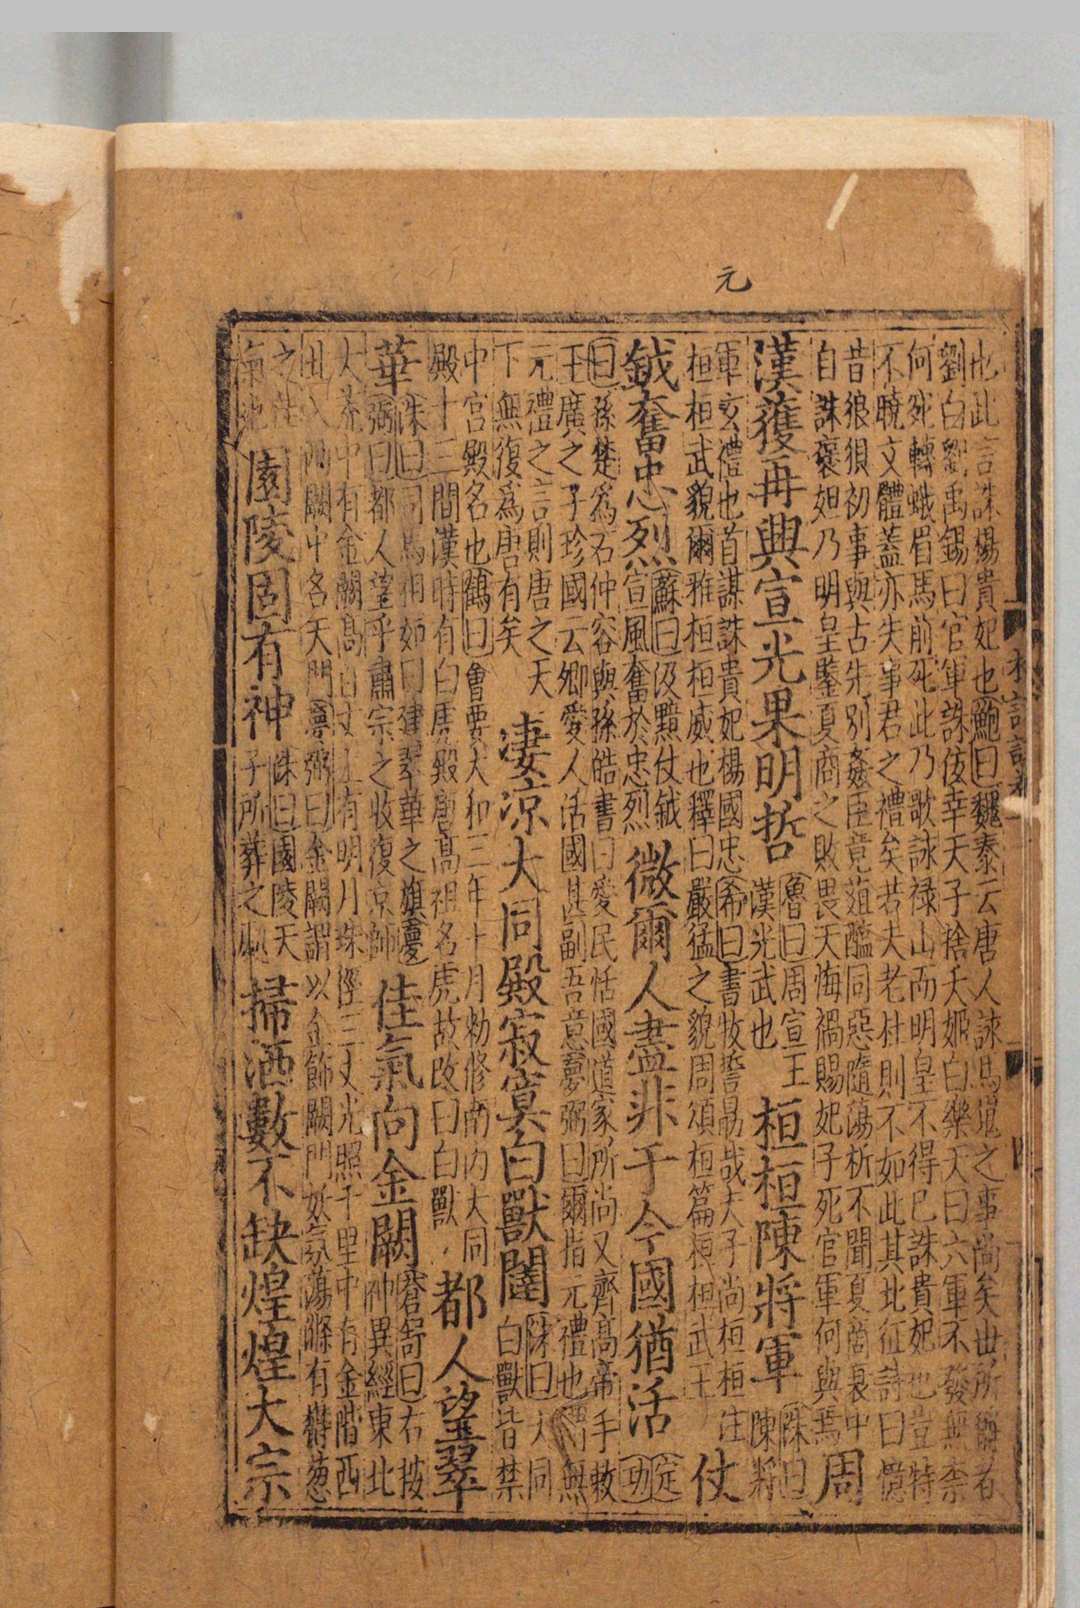 元
也此言誅楊貴妃也鮑曰魏泰云唐人詠馬嵬之事尚矣世所稱者
劉白劉禹錫曰官軍誅佞幸天子捨夭姬白樂天曰六軍不發無柰
何宛轉蛾眉馬前死此乃歌詠祿山而明皇不得已誅貴妃也豈特
不曉文體蓋亦失事君之禮矣若夫老杜則不如此其北征詩曰憶
昔狼狽初事與古先別姦臣竟菹醢同惡隨蕩析不聞夏商衰中
自誅褒妲乃明皇鑒夏商之敗畏天悔禍賜妃子死官軍何與焉周
漢獲再興宣光果明哲魯曰周宣王漢光武也桓桓陳將軍洙曰陳將
軍玄禮也首謀誅貴妃楊國忠希曰書牧誓勗哉夫子尚桓桓注
桓桓武貌爾雅桓桓威也釋曰嚴猛之貌周頌桓篇桓桓武王仗
鉞奮忠烈蘇曰汲黯仗鉞宣風奮於忠烈微爾人盡非于今國猶活定功
曰孫楚為石仲容與孫皓書曰愛民恬國道家所尚又齊高帝手敕
王廣之子珍國云卿愛人活國甚副吾意夢弼曰爾指元禮也謂無
元禮之言則唐之天下無復為唐有矣淒涼大同殿寂寞白獸闥洙曰大同白獸皆禁
中宮殿名也鶴曰會要大和三年十月勑修南內大同
殿十三間漢時有白虎殿唐高祖名虎故改曰白獸都人望翠
華洙曰司馬相如曰建翠華之旗夢弼曰都人望乎肅宗之收復京師佳氣向金闕蒼舒曰右按神異經東北
大荒中有金闕高百丈上有明月珠徑三丈光照千里中有金階西
北入兩闕中名天門夢弼曰金闕謂以金飾闕門妖氛蕩滌有鬱葱
之佳氣也園陵固有神洙曰園陵天子所葬之山掃洒數不缺煌煌大宗